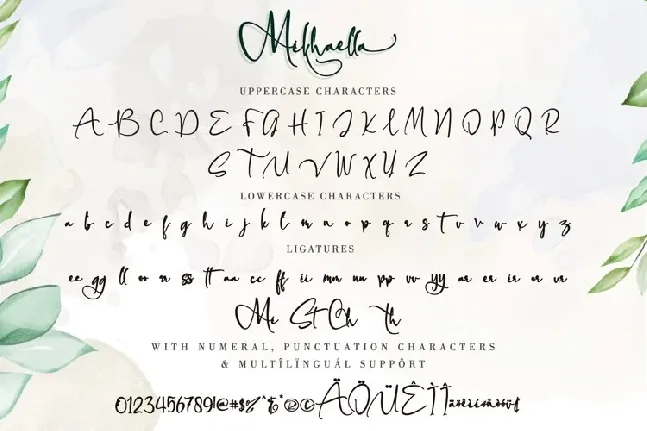 Mikhaella
UPPERCASE CHARACTERS
A B C D E F G H I J K L M N O P Q R
S T U V W X Y Z
LOWERCASE CHARACTERS
a b c d e f g h i j k l m n o p q r s t u v w x y z
LIGATURES
ee gg ll oo rr ss tt aa cc ff ii mm nn pp vv yy ar er ir or ur
St Ch Th
WITH NUMERAL, PUNCTUATION CHARACTERS
& MULTÎLÏNGUÁL SUPPÔRT
0123456789!@#$%^& ÄÖÜÊ